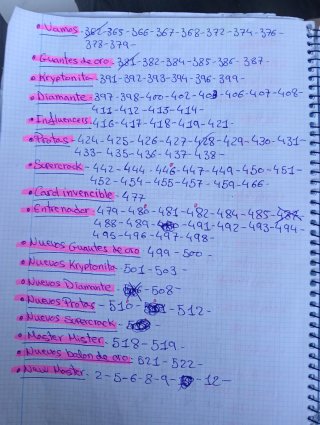 • Vamos. 362-365-366-367-368-372-374-376-
378-379-
• Guantes de oro. 381-382-384-385-386-387-
• Kryptonita. 391-392-393-394-396-399-
• Diamante. 397-398-400-402-403-406-407-408-
411-412-413-414-
• Influencers 416-417-418-419-421-
• Protas. 424-425-426-427-428-429-430-431-
433-435-436-437-438-
• Supercrack. 442-444-446-447-449-450-451-
452-454-455-457-459-466-
• Card invencible. 477
• Entrenador 479-480-481-482-484-485-487-
488-489-491-492-493-494-
495-496-497-498-
• Nuevos Guantes de oro 499-500-
• Nuevos Kryptonita. 501-503-
• Nuevos Diamante. 508-
• Nuevos Protas. 510-512-
• Nuevos Supercrack.
• Master Mister. 518-519-
• Nuevos balon de oro. 521-522-
• New Master. 2-5-6-8-9-12-